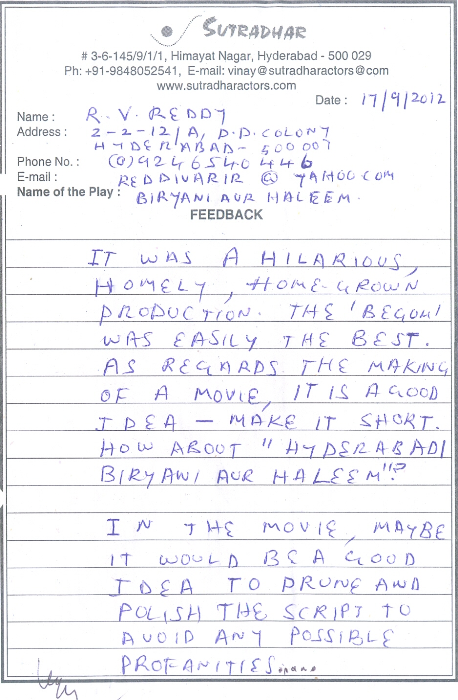 SUTRADHAR
# 3-6-145/9/1/1, Himayat Nagar, Hyderabad - 500 029
Ph: +91-9848052541, E-mail: vinay@sutradharactors.com
www.sutradharactors.com
Date : 17/9/2012
Name : R. V. REDDY
Address : 2-2-12/A, D.D. COLONY
HYDERABAD- 500007
Phone No. : (0)9246540446
E-mail : REDDIVARIR @ YAHOO.COM
Name of the Play : BIRYANI AUR HALEEM.
FEEDBACK
IT WAS A HILARIOUS,
HOMELY, HOME-GROWN
PRODUCTION. THE 'BEGUM'
WAS EASILY THE BEST.
AS REGARDS THE MAKING
OF A MOVIE, IT IS A GOOD
IDEA — MAKE IT SHORT.
HOW ABOUT "HYDERABADI
BIRYANI AUR HALEEM"?
IN THE MOVIE, MAYBE
IT WOULD BE A GOOD
IDEA TO PRUNE AND
POLISH THE SCRIPT TO
AVOID ANY POSSIBLE
PROFANITIES....